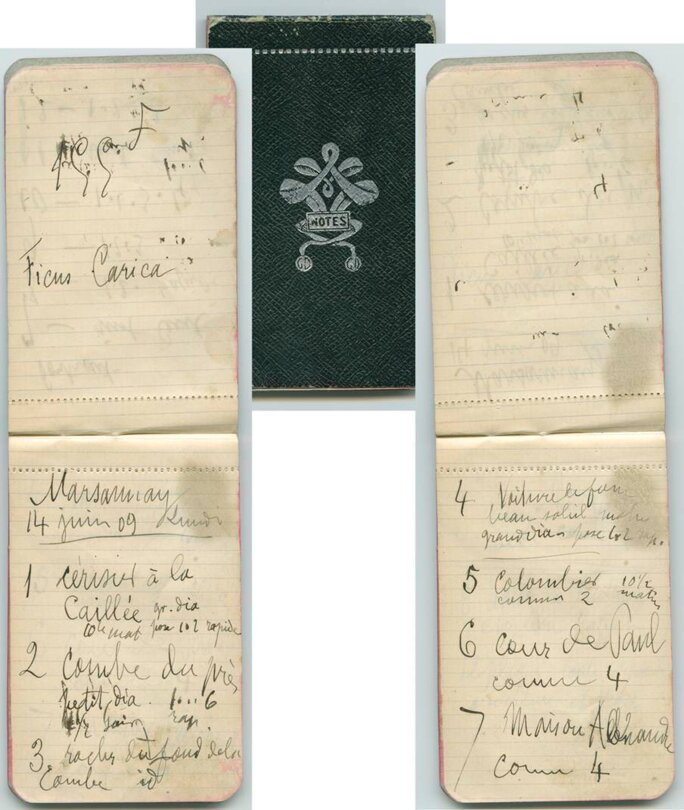 NOTES
Ficus Carica
Marsannay
14 juin 09 Lundi
1 cerisier à la
Caillée gr. dia
10 h mat pose 1 o 2 rapide
2 Combe du pré
petit dia. 6
rap.
3. rocher du fond de la
Combe id
4 Voiture de foin
beau soleil matin
grand dia pose 1 o 2 rap.
5 Colombier 10 1/2
comme 2 matin
6 cour de Paul
comme 4
7 Maison
comme 4